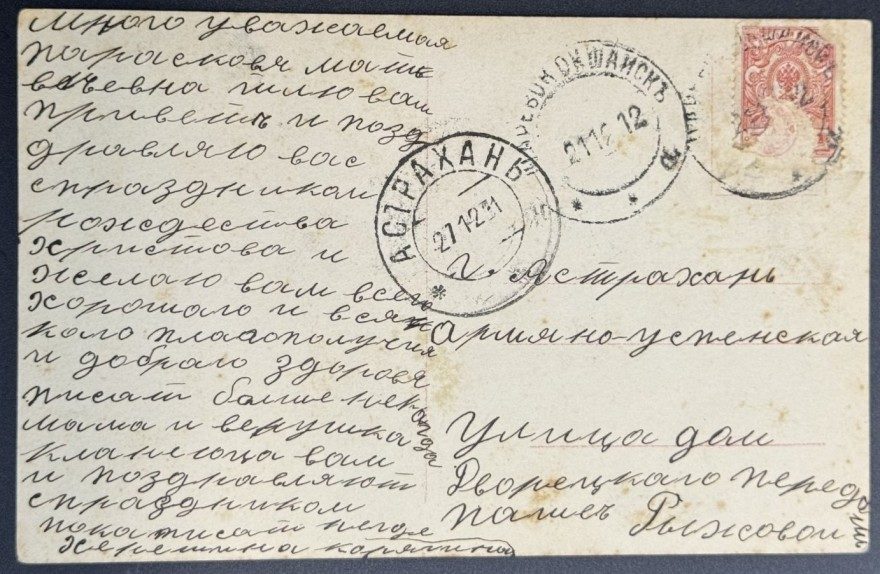 много уважаемая
парасковя мать
вевъевна шлю вам
приветъ и позд
дравляю вас
спраздником
рождества
христова и
желаю вам всего
хорошаго и всяк
каго плагополучия
и доброго здоровя
писат болше некогда
мама и верушка
кланеюца вам
и поздравляют
спраздником
пока писат негде
АСТРАХАНЬ
27 12 31
ОКШАЙСКЪ
12
г. Астрахань
Армяно-успенская
Улица дом
Дворецкаго передъ
Рыжовой